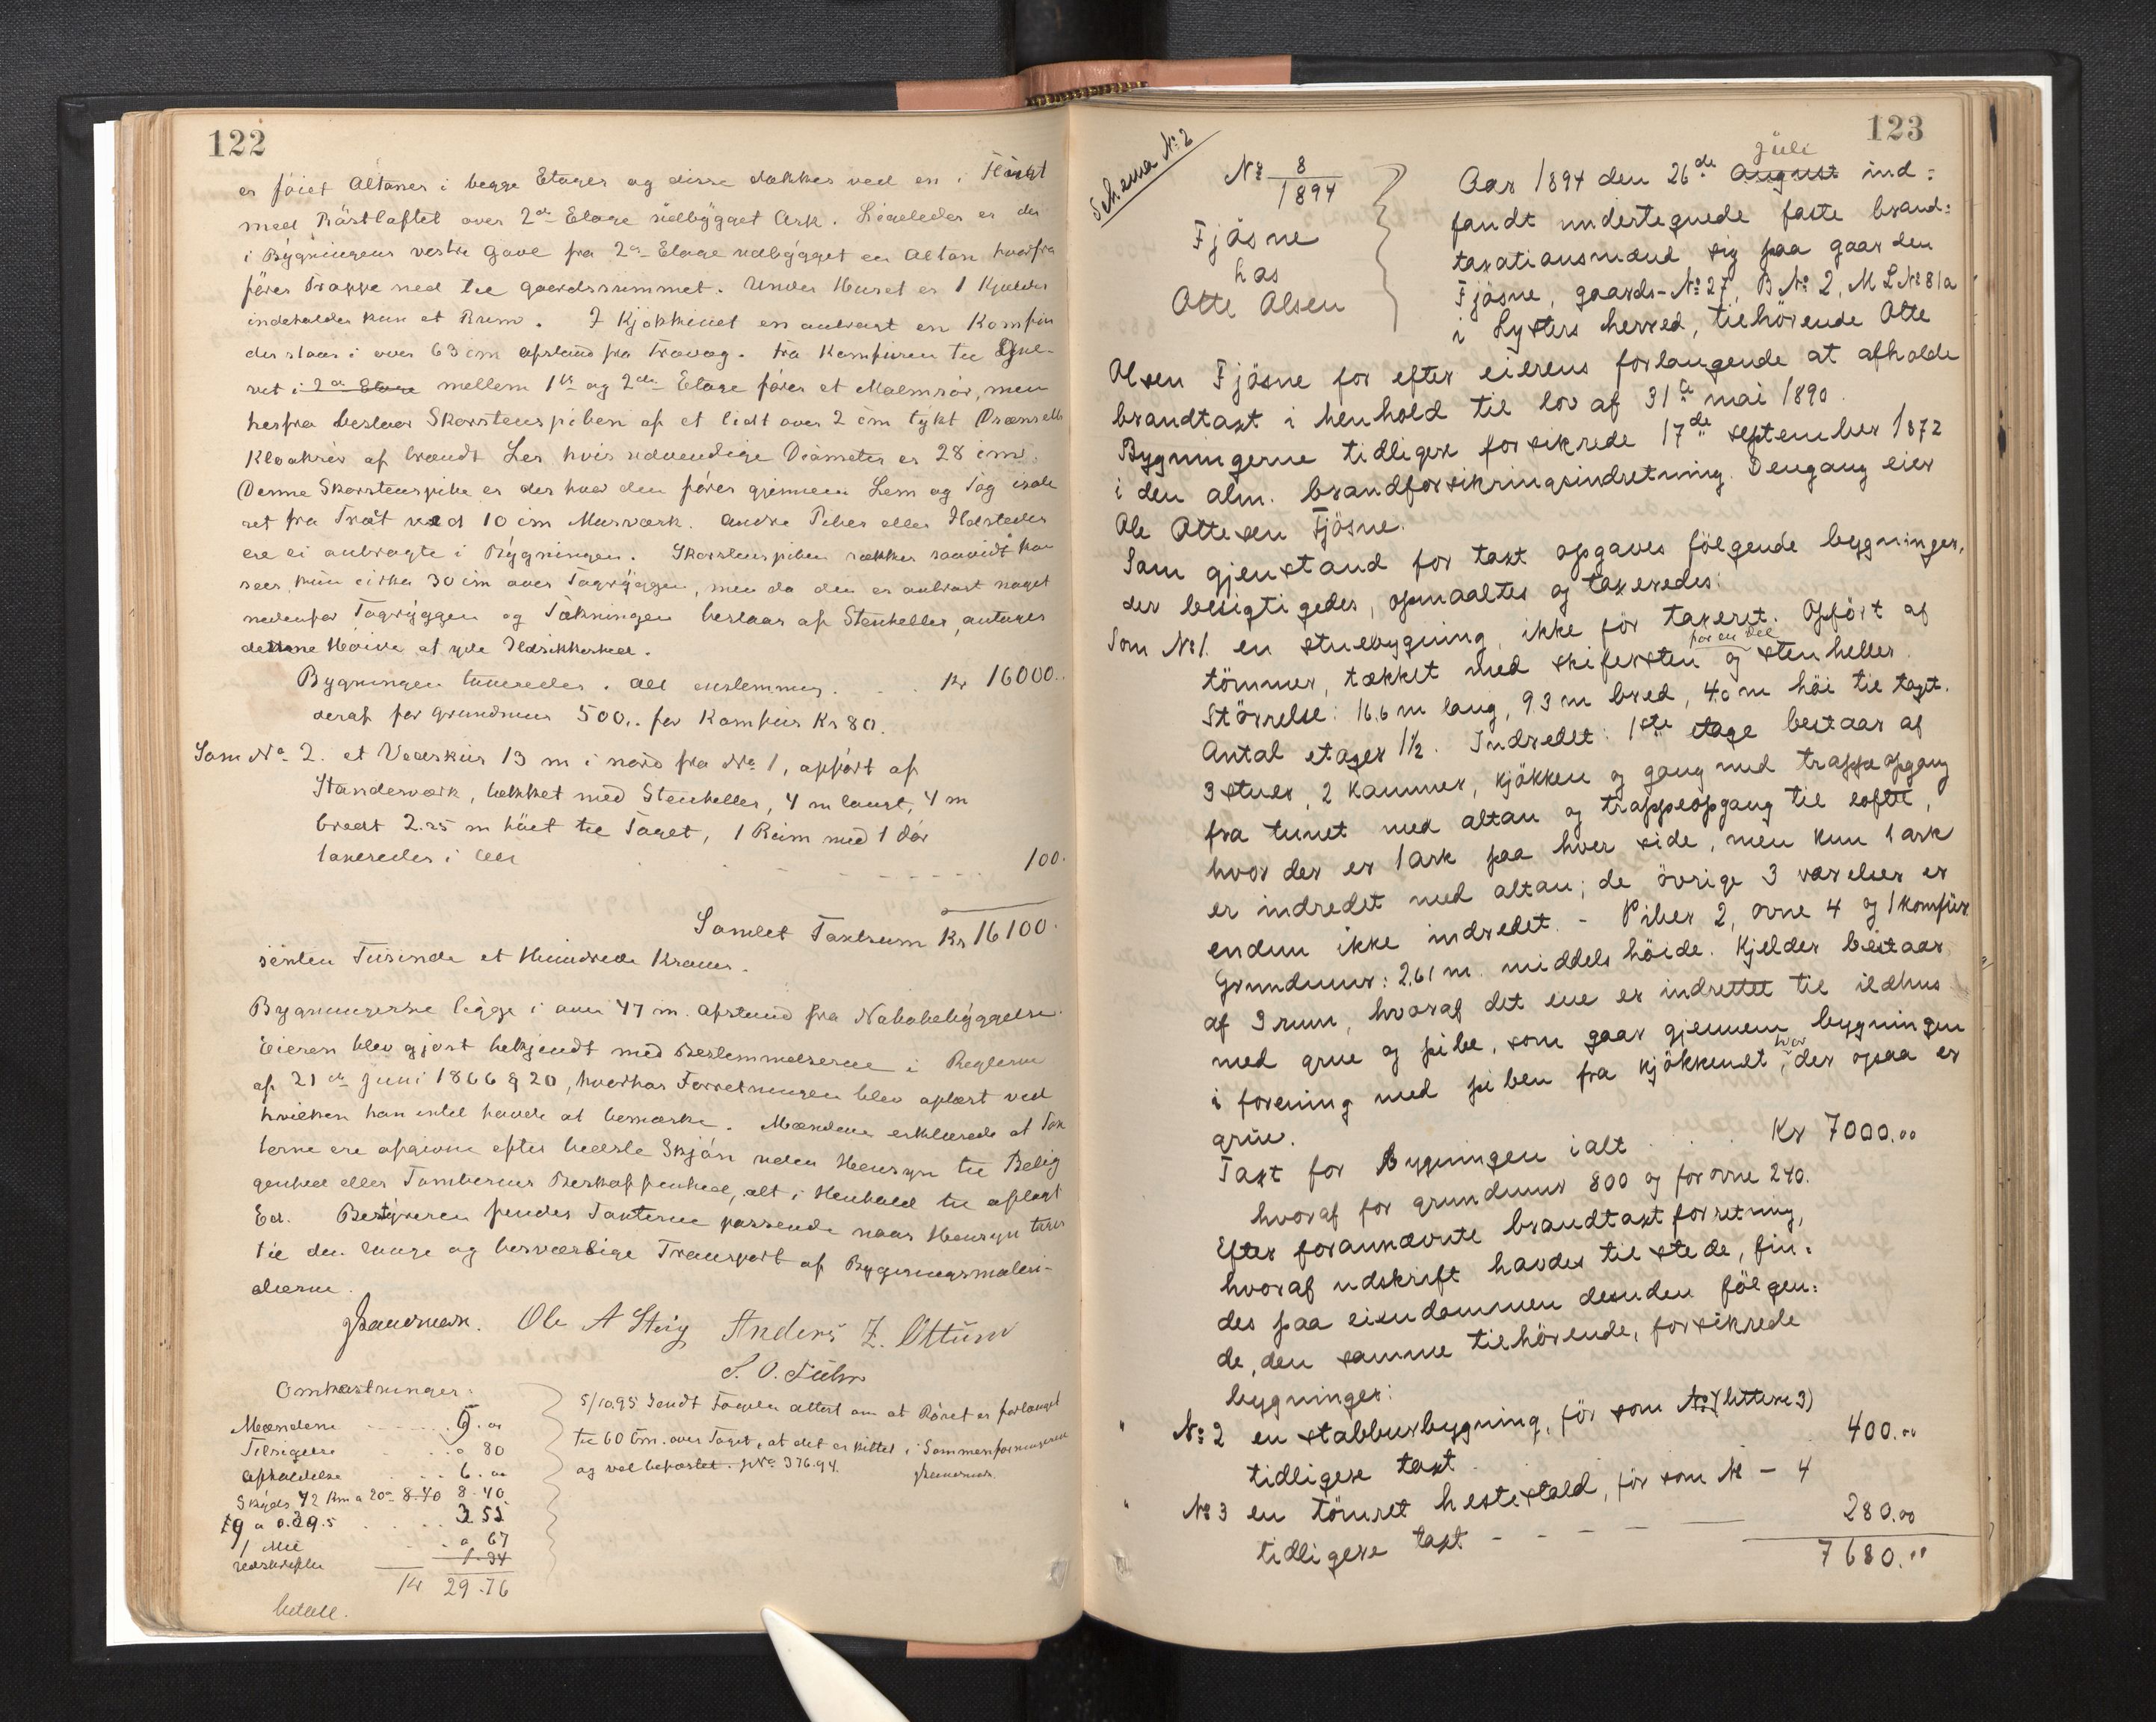 122
er föiet Altaner i begge Etager og disse dækkes ved en i Flugt
med Röstloftet over 2den Etage udbygget Ark. Ligeledes er der
i Bygningens vestre Gavl fra 2den Etage udbygget en Altan hvorfra
fören Trappe ned til Gaardsrummet. Under Huset er 1 Kjelder
indeholder kun et Rum. I Kjökkenet en anbragt en Komfur
der staar i over 63 cm Afstand fra Trævæg. Fra Komfuren til Gul-
vet i 2den Etage mellem 1ste og 2den Etage föres et Malmrör, men
herfra bestaar Skorstenspiben af et lidt over 2 cm tykt
Kloakrör af brændt Ler hvis udvendige Diameter er 28 cm.
Denne Skorstenspibe er der hvor den föres gjennem Lem og Tag isole
ret fra Træt ved 10 cm Murværk. Andre Piber eller Ildsteder
ere ei anbragte i Bygningen. Skorstenspiben rækker saavidt kan
sees kun cirka 30 cm over Tagryggen, men da den er anbragt noget
nedenfor Tagryggen og Tækningen bestaar af Stenheller, antages
denne Höide at yde Ildsikkerhed.
Bygningen taxeredes . All . . . Kr 16000..
deraf for Grundmur 500,. for Komfur Kr 80.
Som No 2. et Vedskur 13 m i nord fra No 1, opfört af
Standerværk, tækket med Stenheller, 4 m langt, 4 m
bredt 2.25 m höit til Taget, 1 Rum med 1 dör
taxeredes i alt - - - - - - - 100.
Samlet Taxtsum Kr 16100.
sexten Tusinde et Hundrede Kroner.
Bygningerne ligge i over 47 m. Afstand fra Nabobebyggelse.
Eieren blev gjort bekjendt med Bestemmelserne i Reglerne
af 21de Juni 1866 § 20, hvorhos Forretningen blev oplæst ved
hvilken han intet havde at bemærke. Mændene erklærede at Tax
terne ere afgivne efter bedste Skjön uden Hensyn til Belig
genhed eller Tomternes Beskaffenhed, alt i Henhold til aflagt
Ed. Bestyreren finder Taxterne passende naar Hensyn tages
til den lange og besværlige Transport af Bygningsmateri-
alierne.
Ole A Steig Anders Z. Ottum
Omkostninger:
Mændene . . . 9.00
Tilsigelse . . . 0 80
Afholdelse . . . 6.00
Skyds 42 Km a 20 8.40 8.40
19 a 0.29.5 . . . 3.55
1 Mil . . 0 67
Udskrifter 1.34
Kr 29.76
betalt.
5/10.95 Sendt Fogden attest om at Röret er forlænget
til 60 Cm. over Taget, at det er kittet i Sammenföiningerne
og vel befæstet. 376.94.
123
Schema No 2
No 8
1894
Fjösne
hos
Otte Olsen
juli
Aar 1894 den 26de August ind=
fandt undertegnede faste brand=
taxationsmænd sig paa gaarden
Fjösne, gaards-No 27, B No 2, M L No 81a
i Lysters herred, tilhörende Otte
Olsen Fjösne for efter eierens forlangende at afholde
brandtaxt i henhold til lov af 31te mai 1890.
Bygningerne tidligere forsikrede 17de september 1872
i den alm. brandforsikringsindretning. Dengang eier
Ole Ottesen Fjösne.
Som gjenstand for taxt opgaves fölgende bygninger,
der besigtigedes, opmaaltes og taxeredes:
Som No 1. en stuebygning, ikke för taxeret. Opfört af
tömmer, tækket med skifersten og for en del stenheller.
Störrelse: 16.6 m lang, 9.3 m bred, 4.0 m höi til taget.
Antal etager 1½. Indredet: 1ste etage bestaar af
3 stuer, 2 kammer, kjökken og gang med trappeopgang
fra tunet med altan og trappeopgang til loftet,
hvor der er 1 ark paa hver side, men kun 1 ark
er indredet med altan; de övrige 3 værelser er
endnu ikke indredet. - Piber 2, ovne 4 og 1 komfur
Grundmur: 2,61 m. middels höide. Kjelder bestaar
af 3 rum, hvoraf det ene er indrettet til ildhus
med grue og pibe, som gaar gjennem bygningen
i forening med piben fra kjökkenet, hvor der ogsaa er
grue.
Taxt for Bygningen ialt . . . Kr 7000.00
hvoraf for grundmur 800 og for ovne 240.
Efter forannævnte brandtaxtforretning,
hvoraf udskrift havdes tilstede, fin=
des paa eiendommen desuden fölgen=
de, den samme tilhörende, forsikrede
bygninger:
" No 2 en stabbursbygning, för som No (littera 3)
tidligere taxt . . . 400.00
" No 3 en tömret hestestald, för som No - 4
tidligere taxt - - - - 280.00
7680.00